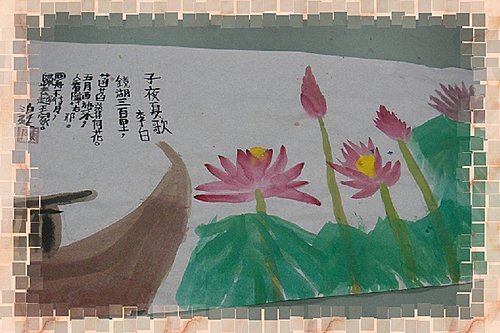 子夜吳歌
李白
鏡湖三百里，
菡萏發荷花。
五月西施采，
人看隘若耶。
回舟不待月，
歸去越王家。